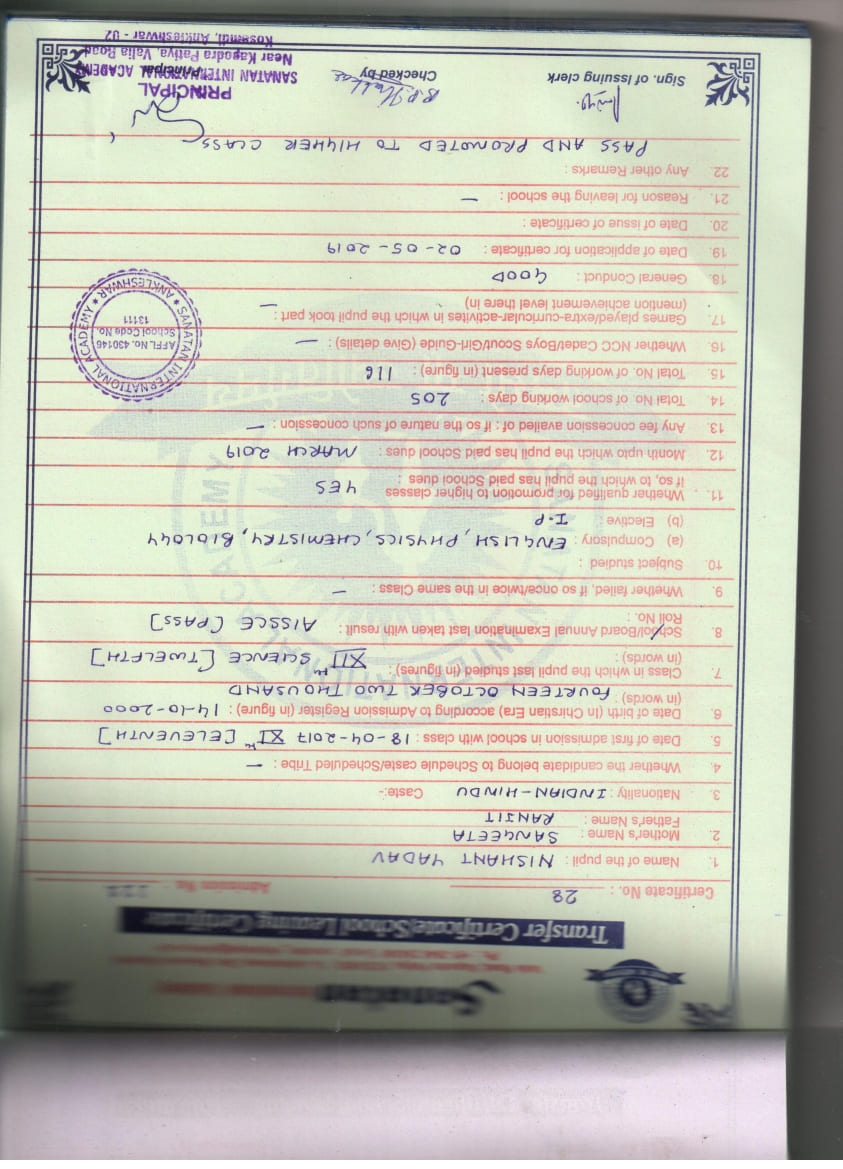 Sanatan
Transfer Certificate/School Leaving Certificate
Certificate No. : 28 Admission No.
1. Name of the pupil : NISHANT YADAV
2. Mother's Name : SANGEETA
Father's Name : RANJIT
3. Nationality : INDIAN-HINDU Caste:-
4. Whether the candidate belong to Schedule caste/Scheduled Tribe : —
5. Date of first admission in school with class : 18-04-2017 XI th [ELEVENTH]
6. Date of birth (In Chirstian Era) according to Admission Register (in figure) : 14-10-2000
(in words) : FOURTEEN OCTOBER TWO THOUSAND
7. Class in which the pupil last studied (in figures) : XII th SCIENCE [TWELFTH]
(in words) :
8. School/Board Annual Examination last taken with result : AISSCE [PASS]
Roll No. :
9. Whether failed, if so once/twice in the same Class : —
10. Subject studied :
(a) Compulsory : ENGLISH, PHYSICS, CHEMISTRY, BIOLOGY
(b) Elective : I.P
11. Whether qualified for promotion to higher classes
if so, to which the pupil has paid School dues : YES
12. Month upto which the pupil has paid School dues : MARCH 2019
13. Any fee concession availed of : if so the nature of such concession : —
14. Total No. of school working days : 205
15. Total No. of working days present (in figure) : 116
16. Whether NCC Cadet/Boys Scout/Girl-Guide (Give details) : —
17. Games played/extra-curricular-activites in which the pupil took part :
(mention achievement level there in) —
18. General Conduct : GOOD
19. Date of application for certificate : 02-05-2019
20. Date of issue of certificate :
21. Reason for leaving the school : —
22. Any other Remarks :
PASS AND PROMOTED TO HIGHER CLASS
Sign. of issuing clerk Checked by Principal
PRINCIPAL
SANATAN INTERNATIONAL ACADEMY
Near Kapodra Patiya, Valia Road
Kosamdi, Ankleshwar - 02
SANATAN INTERNATIONAL ACADEMY ★ ANKLESHWAR ★
AFFL No. 430146
School Code No.
13111
INTERNATIONAL ACADEMY